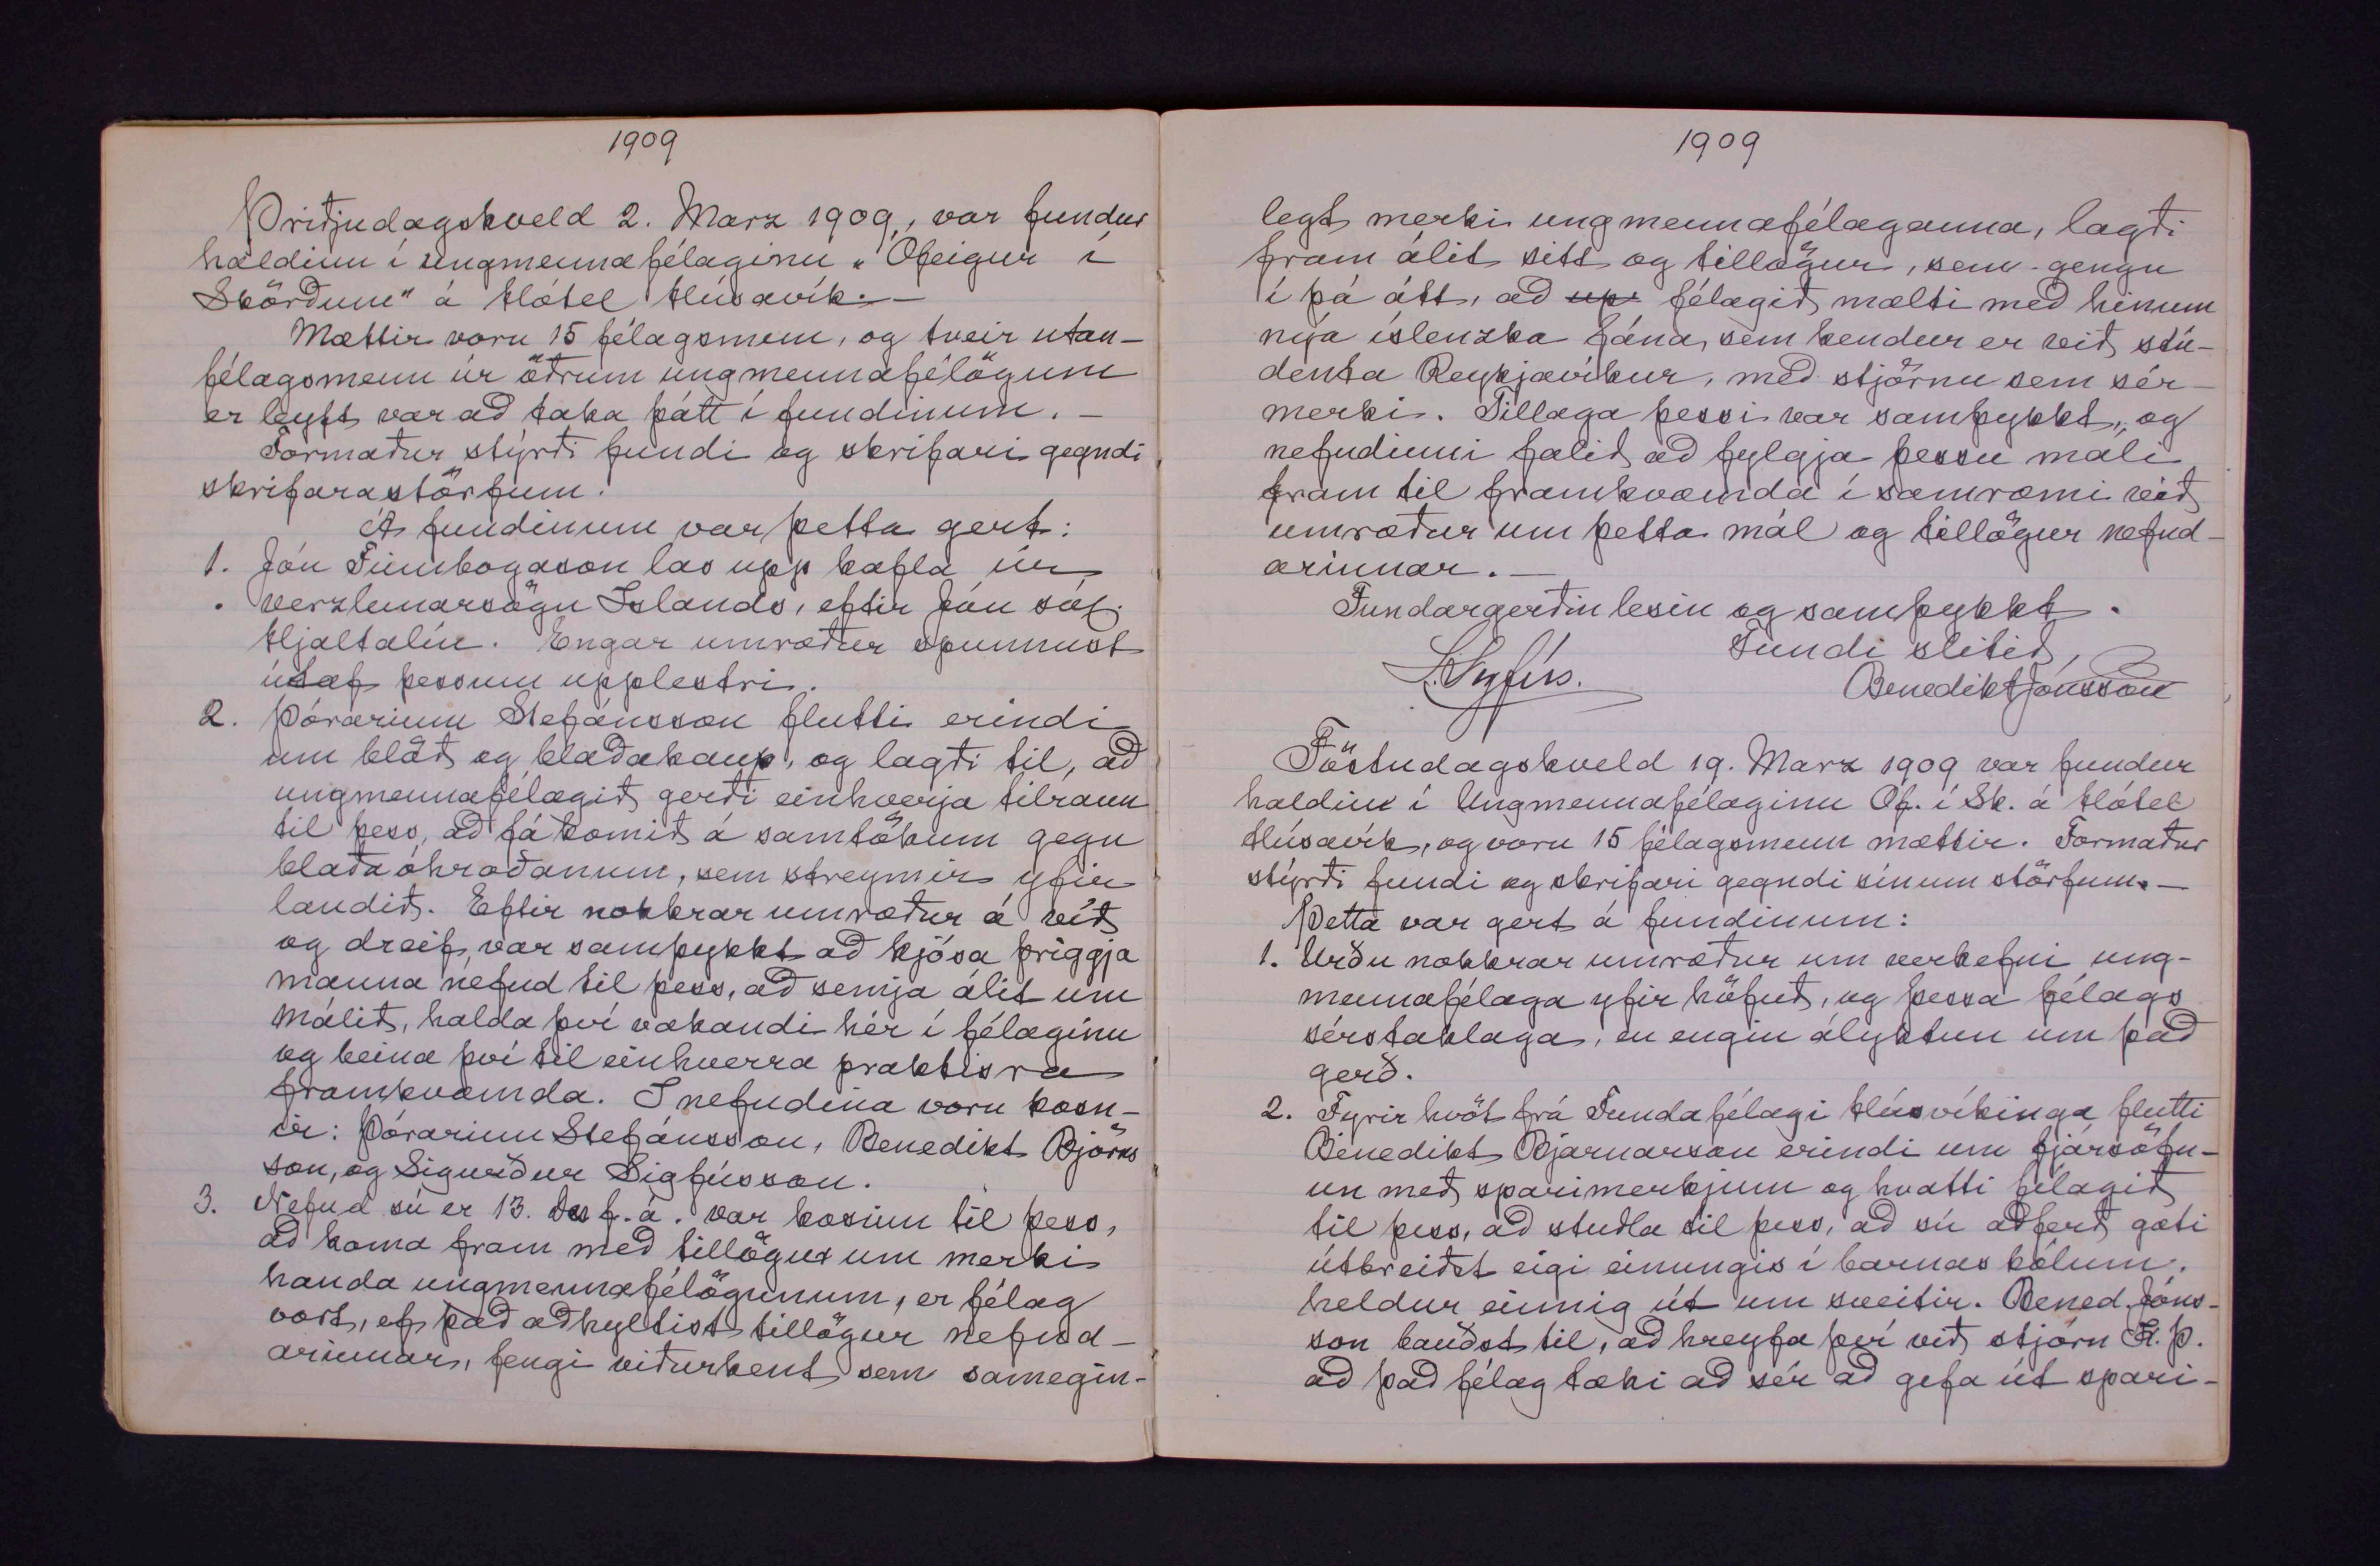 1909
Þriðjudagskveld 2. Marz 1909, var fundur
haldinn í ungmennafélaginu „Ófeigur í
Skörðum" á Hótel Húsavík. —
Mættir voru 15 félagsmenn, og tveir utan-
félagsmenn úr öðrum ungmennafélögum
er leyft var að taka þátt í fundinum. —
Formaður stýrði fundi og skrifari gegndi
skrifarastörfum.
Á fundinum var þetta gert:
1. Jón Finnbogason las upp kafla úr
verzlunarsögu Íslands, eftir Jón sál.
Hjaltalín. Engar umræður spunnust
útaf þessum upplestri.
2. Þórarinn Stefánsson flutti erindi
um blöð og blaðakaup, og lagði til, að
ungmennafélagið gerði einhverja tilraun
til þess, að fá komið á samtökum gegn
blaðaóhroðanum, sem streymir yfir
landið. Eftir nokkrar umræður á víð
og dreif, var samþykkt að kjósa þriggja
manna nefnd til þess, að semja álit um
málið, halda því vakandi hér í félaginu
og beina því til einhverra praktisra
framkvæmda. Í nefndina voru kosn-
ir: Þórarinn Stefánsson, Benedikt Björns
son, og Sigurður Sigfússon.
3. Nefnd sú er 13. f. á. var kosinn til þess,
að koma fram með tillögur um merki
handa ungmennafélögunum, er félag
vort, ef það aðhyltist tillögur nefnd-
arinnar, fengi viðurkent sem samegin-
1909
legt merki ungmennafélaganna, lagði
fram álit sitt og tillögur, sem gengu
í þá átt, að up félagið mælti með hinum
nýja íslenzka fána, sem kendur er við stú-
denta Reykjavíkur, með stjörnu sem sér-
merki. Tillaga þessi var samþykkt, og
nefndinni falið að fylgja þessu máli
fram til framkvæmda í samræmi við
umræður um þetta mál og tillögur nefnd-
arinnar. —
Fundargerðin lesin og samþykkt.
Fundi slitið,
S. Sigfús. Benedikt Jónsson
Föstudagskveld 19. Marz 1909 var fundur
haldinn í Ungmennafélaginu Óf. í Sk. á Hótel
Húsavík, og voru 15 félagsmenn mættir. Formaður
stýrði fundi og skrifari gegndi sínum störfum. —
Þetta var gert á fundinum:
1. Urðu nokkrar umræður um verkefni ung-
mennafélaga yfir höfuð, og þessa félags
sérstaklaga, en engin ályktun um það
gerð.
2. Fyrir hvöt frá Fundafélagi Húsvíkinga flutti
Benedikt Bjarnarson erindi um fjársöfn-
un með sparimerkjum og hvatti félagið
til þess, að stuðla til þess, að sú aðferð gæti
útbreiðst eigi einungis í barnaskólum,
heldur einnig út um sveitir. Bened. Jóns-
son bauðst til, að hreyfa því við stjórn K. Þ.
að það félag tæki að sér að gefa út spari-